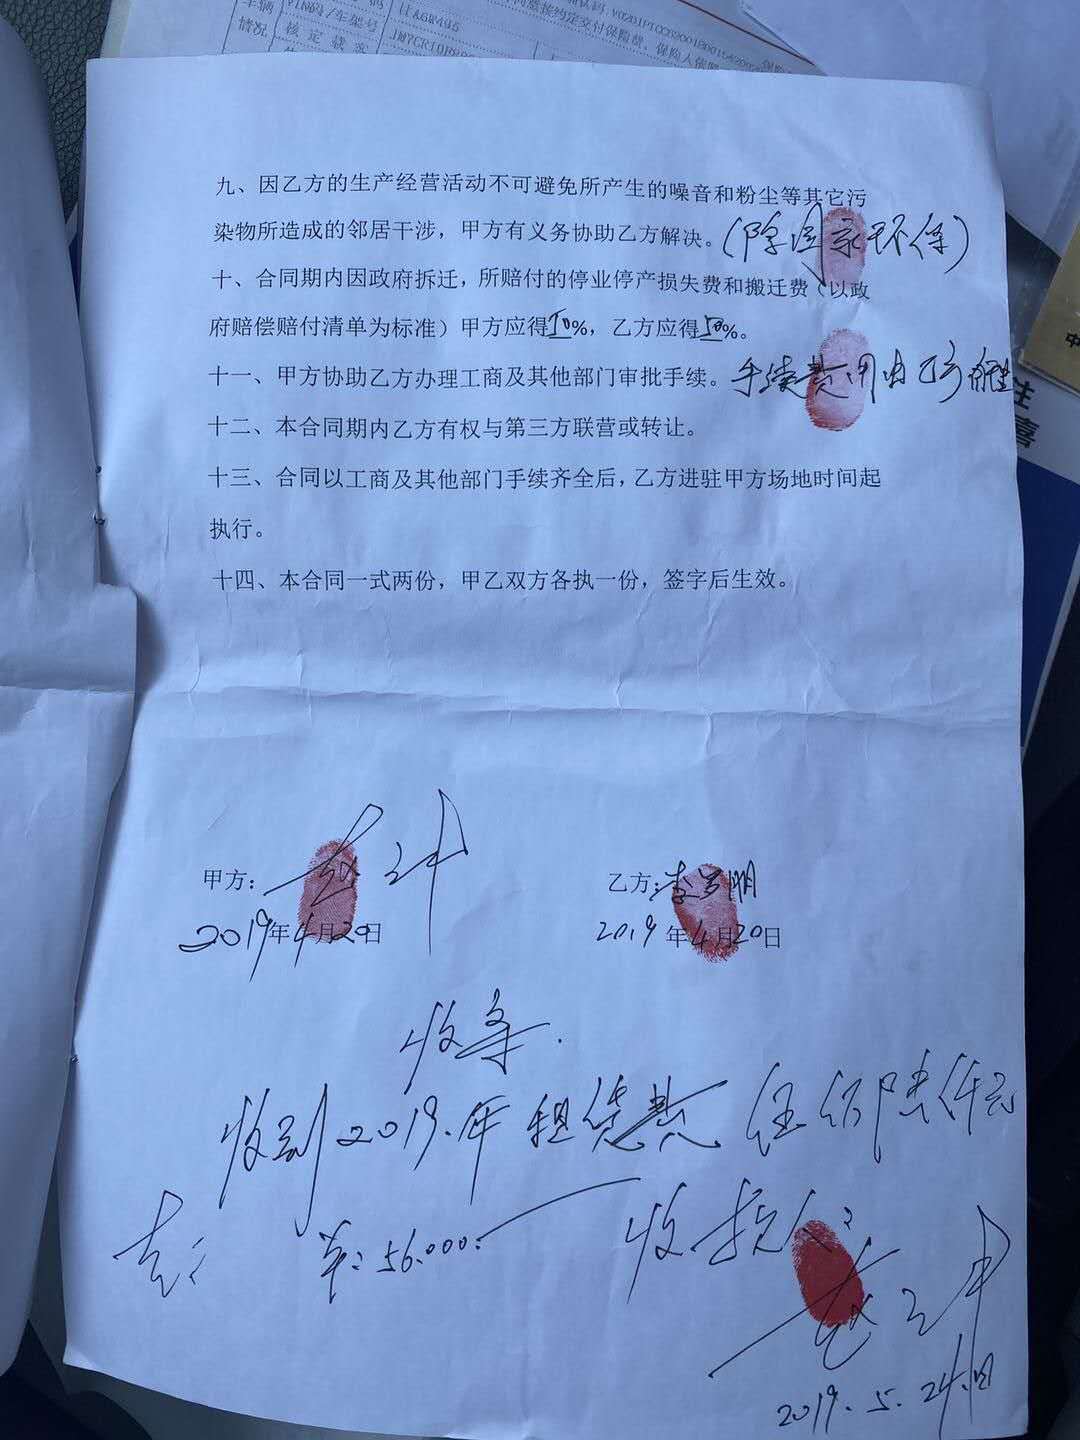 车辆
情况
核定载客
LEA6W495
同意按约定交付保险费，保险人依照
九、因乙方的生产经营活动不可避免所产生的噪音和粉尘等其它污
染物所造成的邻居干涉，甲方有义务协助乙方解决。(除国家环保)
十、合同期内因政府拆迁，所赔付的停业停产损失费和搬迁费（以政
府赔偿赔付清单为标准）甲方应得50%，乙方应得50%。
十一、甲方协助乙方办理工商及其他部门审批手续。手续费用由乙方
十二、本合同期内乙方有权与第三方联营或转让。
十三、合同以工商及其他部门手续齐全后，乙方进驻甲方场地时间起
执行。
十四、本合同一式两份，甲乙双方各执一份，签字后生效。
甲方：
乙方：李 明
2019年4月20日
2019年4月20日
收条.
收到2019.年租赁费 伍 陆仟元
56.000:
收款人:
2019.5.24日